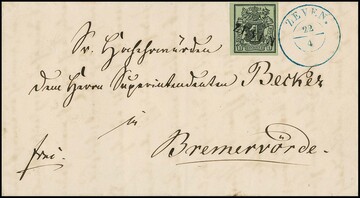 ZEVEN.
22
4
1
Sr. Hochehrwürden
dem Herrn Superintendenten Becker
in
frei.
Bremervörde.